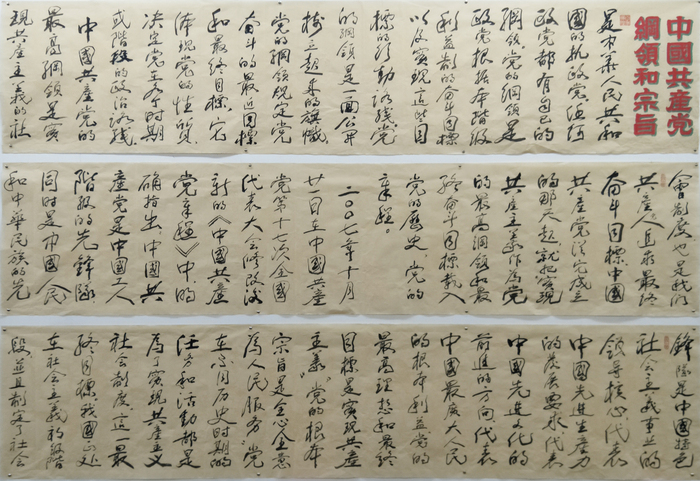 中國共產党
綱領和宗旨
是中華人民共和
國的执政党任何
政党都有自己的
綱領党的綱領是
政党根据本階级
利益制的奋斗目標
以及實现這些目
標的行動路线党
的綱領是一面公开
樹立起来的旗幟
党的綱領规定党
奋斗的最近目標
和最终目標它
体现党的性質
决定党在各个时期
或階段的政治路线
中國共產党的
最高綱領是實
現共產主義的社
會制度也是我們
共產人追求最终
奋斗目標中國
共產党從完成立
的那天起就把實现
共產主義作為党
的最高綱領和最
终奋斗目標載入
党的歷史党的
章程。
二00七年十月
廿一日在中國共產
党第十七次全國
代表大会修改後
新的《中國共產
党章程》中的
确指出中國共
產党是中國工人
階级的先鋒隊
同时是中國人民
和中華民族的先
鋒隊是中國特色
社会主義事业的
领導核心代表
中國先進生產力
的发展要求代表
中國先進文化的
前進的方向代表
中國最廣大人民
的根本利益党的
最高理想和最终
目標是實现共產
主義"党的根本
宗旨是全心全意
為人民服务"党
在不同历史时期的
任务和活動都是
為了實现共產主义
社会制度這一最
终目標我國正处
在社会主義初级階
段並且制定了社会